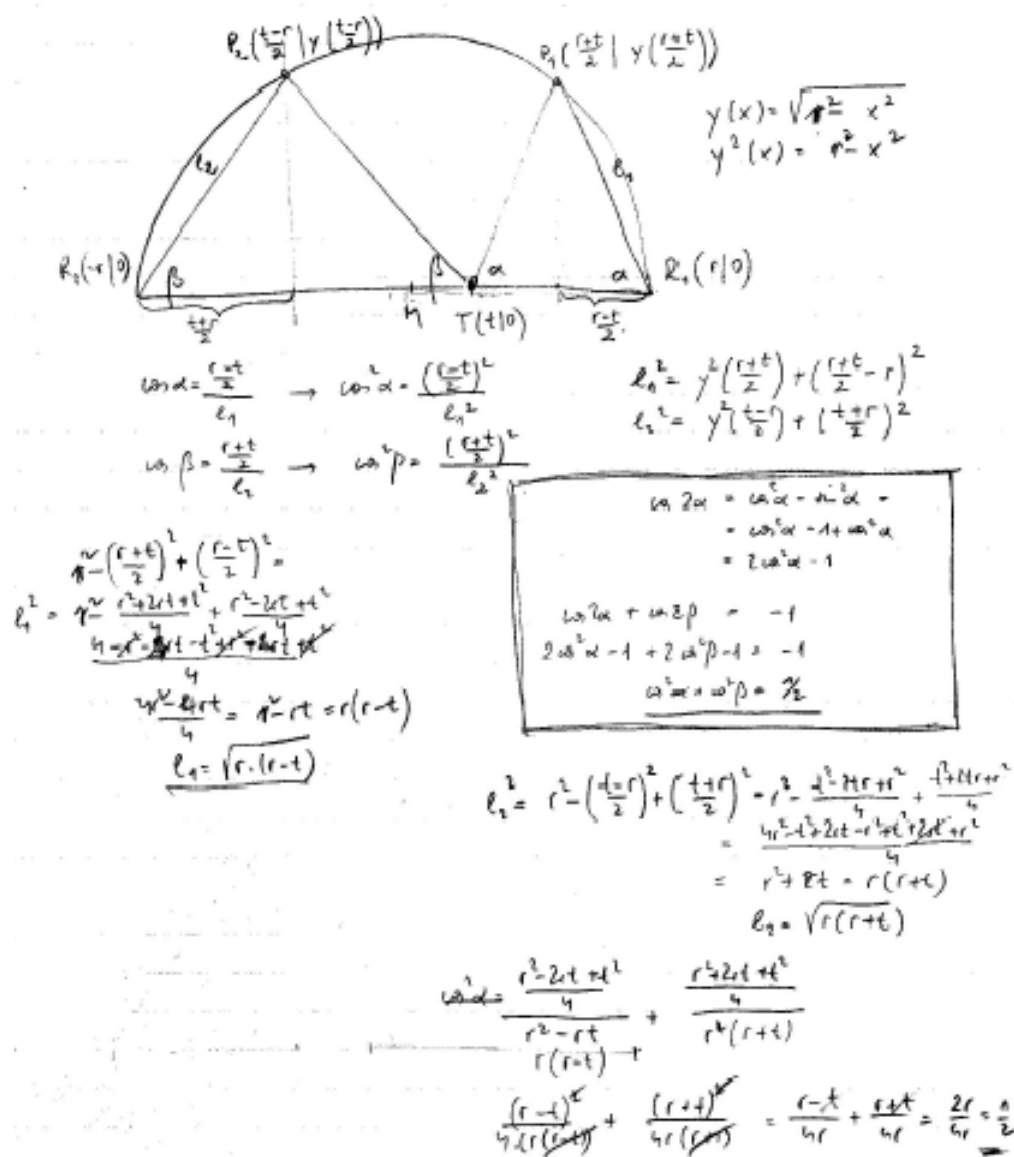 P₂(\frac{t-r}{2} | y(\frac{t-r}{2}))
P₁(\frac{r+t}{2} | y(\frac{r+t}{2}))
y(x) = √(r² - x²)
y²(x) = r² - x²
l₂
l₁
R₂(-r|0)
β
β
α
α
R₁(r|0)
\frac{t+r}{2}
M
T(t|0)
\frac{r-t}{2}
cos α = \frac{\frac{r-t}{2}}{l₁} → cos²α = \frac{(\frac{r-t}{2})²}{l₁²}
l₁² = y²(\frac{r+t}{2}) + (\frac{r+t}{2} - r)²
l₂² = y²(\frac{t-r}{2}) + (\frac{t+r}{2})²
cos β = \frac{\frac{r+t}{2}}{l₂} → cos²β = \frac{(\frac{r+t}{2})²}{l₂²}
cos 2α = cos²α - sin²α =
= cos²α - 1 + cos²α
= 2cos²α - 1
cos 2α + cos 2β = -1
2cos²α - 1 + 2cos²β - 1 = -1
cos²α + cos²β = 1/2
r² - (\frac{r+t}{2})² + (\frac{r-t}{2})² =
l₁² = r² - \frac{r²+2rt+t²}{4} + \frac{r²-2rt+t²}{4}
\frac{4r²-4rt}{4} = r² - rt = r(r-t)
l₁ = √(r·(r-t))
l₂² = r² - (\frac{t-r}{2})² + (\frac{t+r}{2})² = r² - \frac{t²-2tr+r²}{4} + \frac{t²+2tr+r²}{4}
= \frac{4r²-t²+2rt-r²+t²+2rt+r²}{4}
= r² + rt = r(r+t)
l₂ = √(r(r+t))
cos²α = \frac{\frac{r²-2rt+t²}{4}}{r²-rt} + \frac{\frac{r²+2rt+t²}{4}}{r(r+t)}
r(r-t)
\frac{(r-t)²}{4r(r-t)} + \frac{(r+t)²}{4r(r+t)} = \frac{r-t}{4r} + \frac{r+t}{4r} = \frac{2r}{4r} = \frac{1}{2}